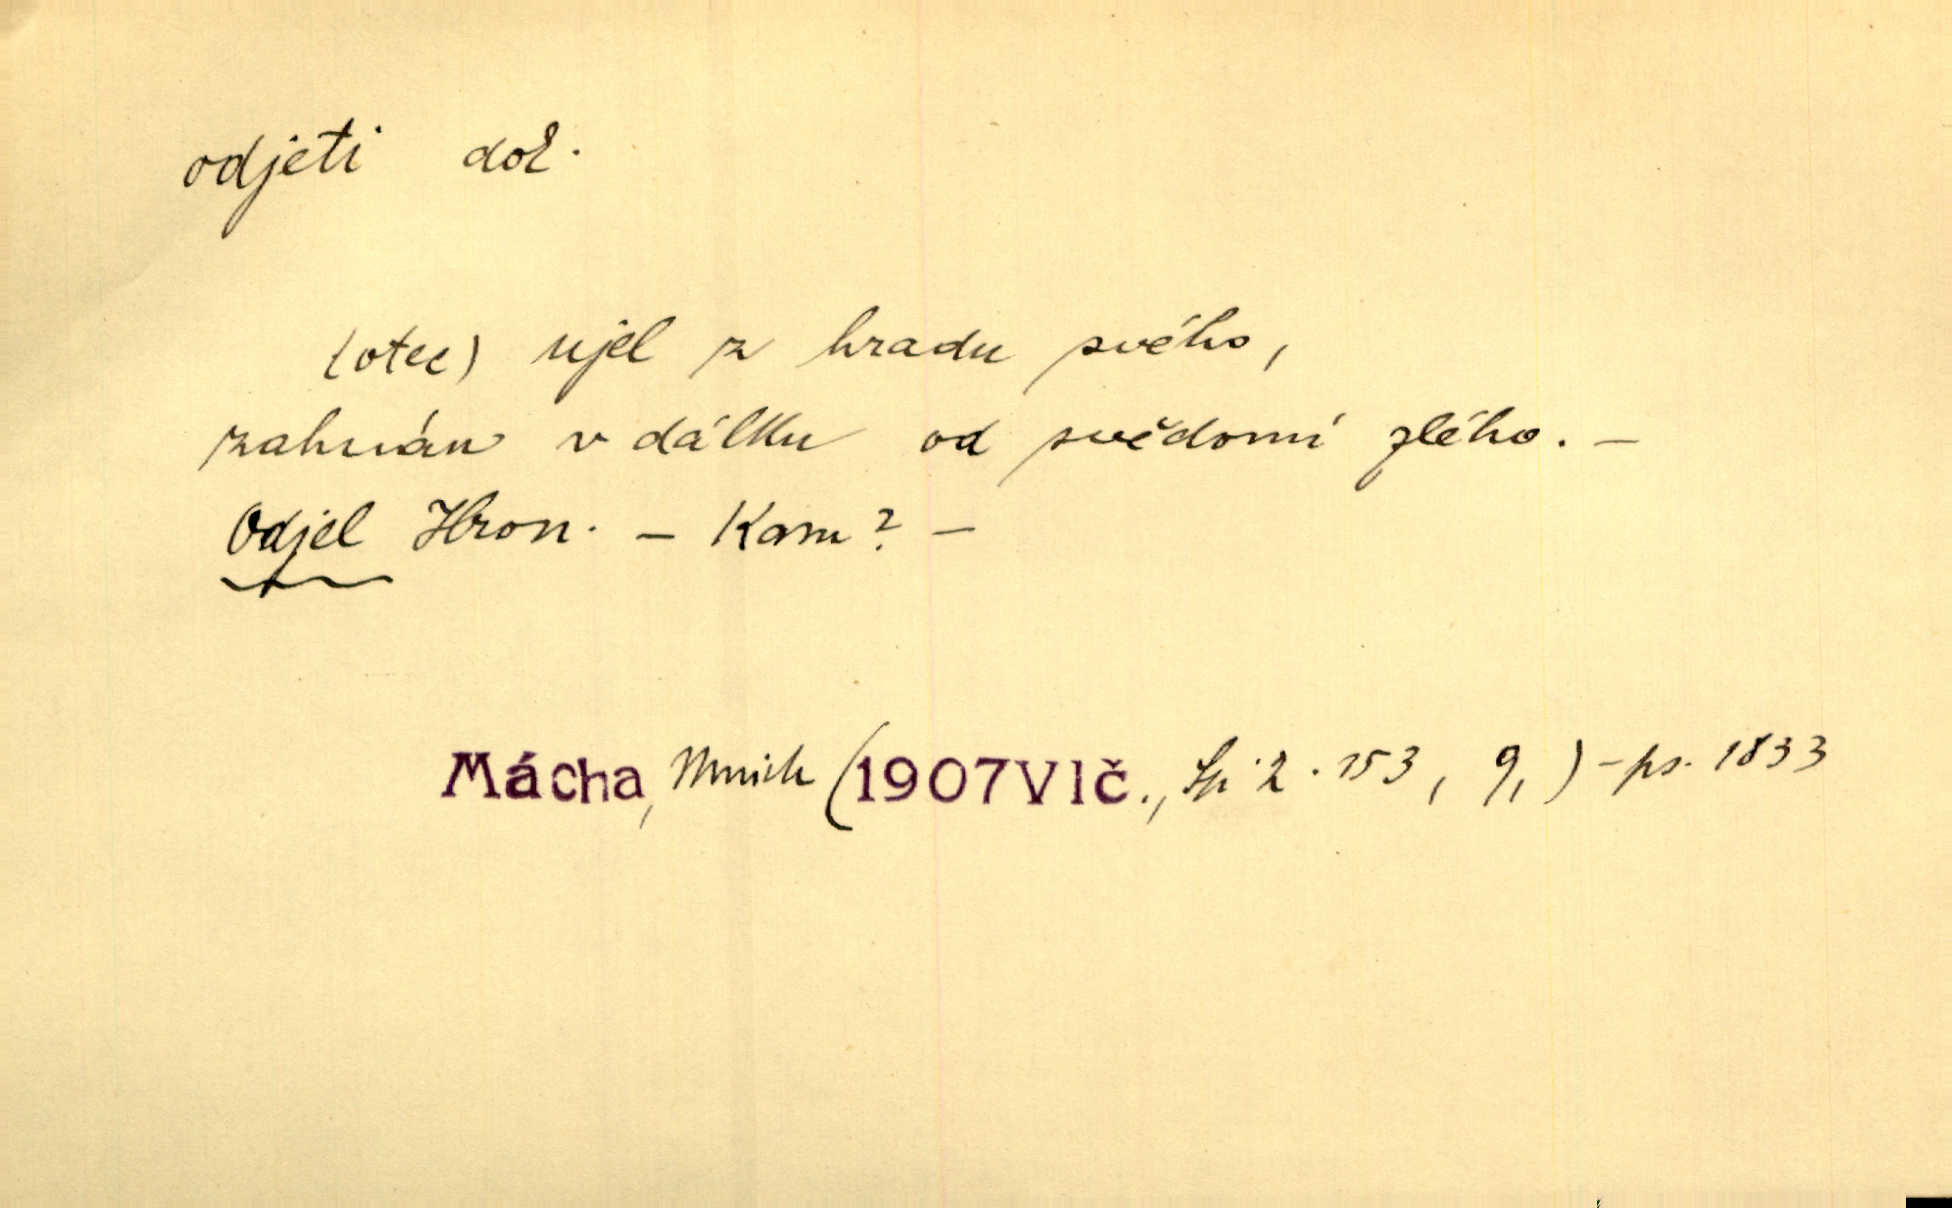 odjeti dok.
(otec) ujel z hradu svého,
zahnán v dálku od svědomí zlého. –
Odjel Hron. – Kam? –
Mácha, Mnich (1907 Vlč., Sp. 2. 153, 9,) – ps. 1833